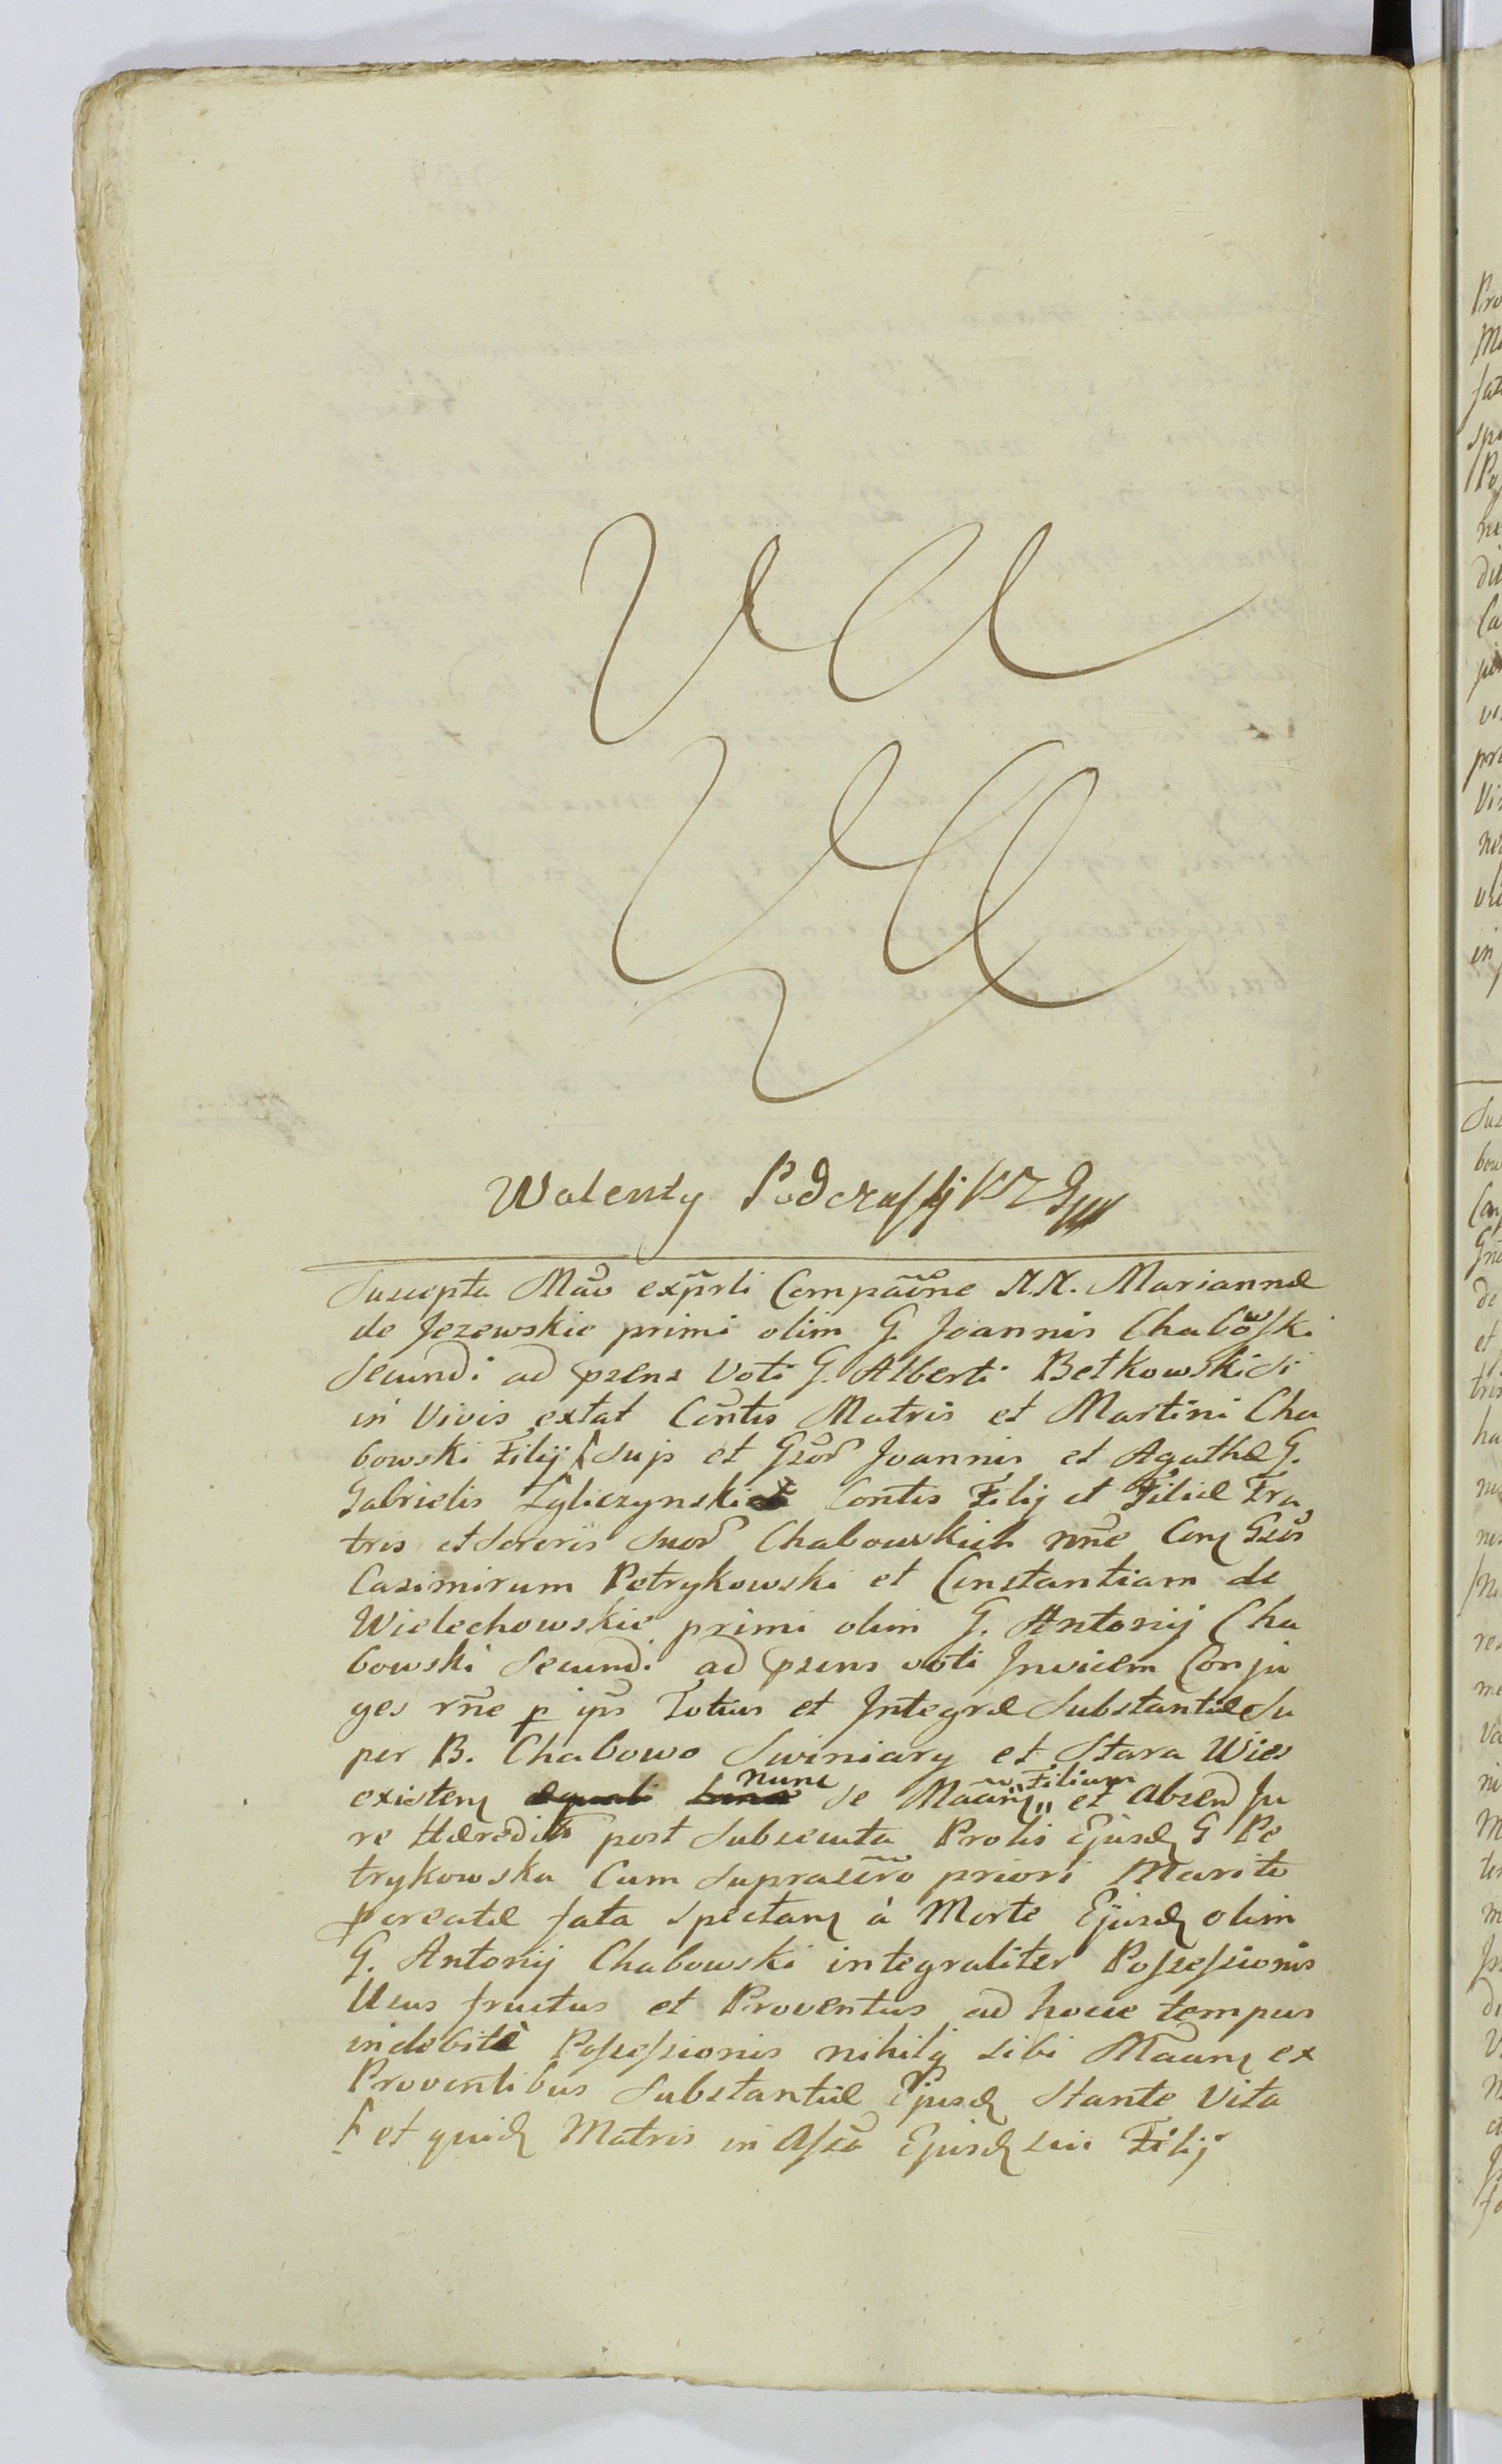 Walenty Podczaski
Suscepta Mão exp̃rti Compaõne N.N. Mariannæ
de Jezewskie primi olim G. Joannis Chabowski
Secundi ad præns Voti G. Alberti Betkowski si
in Vivis extat Cõntis Matris et Martini Cha
bowski Filij Γ Sup et Gsor Joannis et Agathæ G.
Gabrielis Zgliczynski Contis Filij et Filiæ Fra
tris et Sororis Suor Chabowskich rñe Con Gsos
Casimirum Petrykowski et Constantiam de
Wielechowskie primi olim G. Antonij Cha
bowski Secundi ad præns voti Invicem Conju
ges rñe p ips Totius et Integræ Substantiæ Su
per B. Chabowo Swiniary et Stara Wies
existen nunc se Maãn „Filium„ et absend Ju
re Hæredit post Subsecuta Prolis Ejusd G Pe
trykowska Cum Suprascro priori Marito
pcreatæ fata spectan à Morte Ejusd olim
G. Antonij Chabowski integraliter Possessionis
Usus fructus et Proventus ad hocce tempus
indebitè Possessionis nihilq sibi Maan ex
Proventibus Substantiæ Ejusd Stante Vita
Γ et quid Matris in Assa Ejusd sui Filij